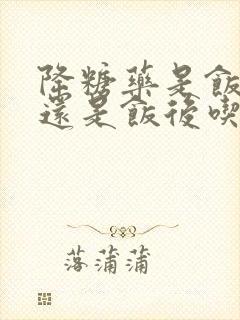 降糖藥是飯
還是飯後喫
落蒲蒲